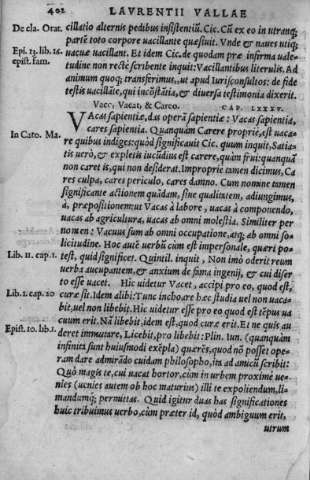 402 LAVRENTII VALLAE
De cla. Orat. cillatio alternis pedibus insistentiū. Cic. Cū ex eo in utranq;
parte toto corpore vacillante quæsiuit. Vnde & naues utiq;
Epi. 13. lib. 16. uacuæ vacillant. Et idem Cic. de quodam præ infirma uale-
epist. fam. tudine non recte scribente inquit: Vacillantibus literulis. Ad
animum quoq; transferimus, ut apud Iurisconsultos: de fide
testis vacillare, qui incōstātia, & diuersa testimonia dixerit.
Vaco, Vacat, & Careo. CAP. LXXXV.
Vacat sapientiæ, dat operā sapientiæ: Vacat sapientia,
cares sapientia. Quanquàm Carere proprie, est uaca-
In Cato. Ma. re quibus indiges: quòd significauit Cic. quum inquit, Satia-
tis verò, & expletis iucūdius est carere, quàm frui: quanquā
non caret is, qui non desiderat. Improprie tamen dicimus, Ca
res culpa, cares periculo, cares damno. Cum nomine tamen
significante actionem quādam, siue qualitatem, adiungimus,
à, præpositionem: ut Vacas à labore, uacas à componendo,
uacas ab agricultura, uacas ab omni molestia. Similiter per
nomen: Vacuus sum ab omni occupatione, atq; ab omni so-
licitudine. Hoc autē uerbū cum est impersonale, quæri po-
Lib. 11. cap. 1. test, quid significet. Quintil. inquit, Non imò oderit reum
uerba aucupantem, & anxium de fama ingenij, & cui diser
to esse uacet. Hic uidetur Vacet, accipi pro eo, quod est,
Lib. 1. cap. 20 curæ sit. Idem alibi: Tunc inchoare hæc studia uel non uaca-
bit, uel non libebit. Hic uidetur esse pro eo quod est tēpus ua
cuum erit. Nā libebit, idem est, quod curæ erit. Et ne quis au
Epist. 10. lib. 1. deret immutare, Licebit, pro libebit: Plin. Iun. (quanquàm
infiniti sunt huiusmodi exēpla) quæres, quod nō posset ope-
ram dare admirādo cuidam philosopho, in ad amicū scribit:
Quò magis te, cui uacat hortor, cum in urbem proximè ue-
nies (uenies autem ob hoc maturius) illi te expoliendum, li-
mandumq; permittas. Quid igitur duas has significationes
huic tribuimus uerbo, cùm præter id, quòd ambiguum erit,
utrum